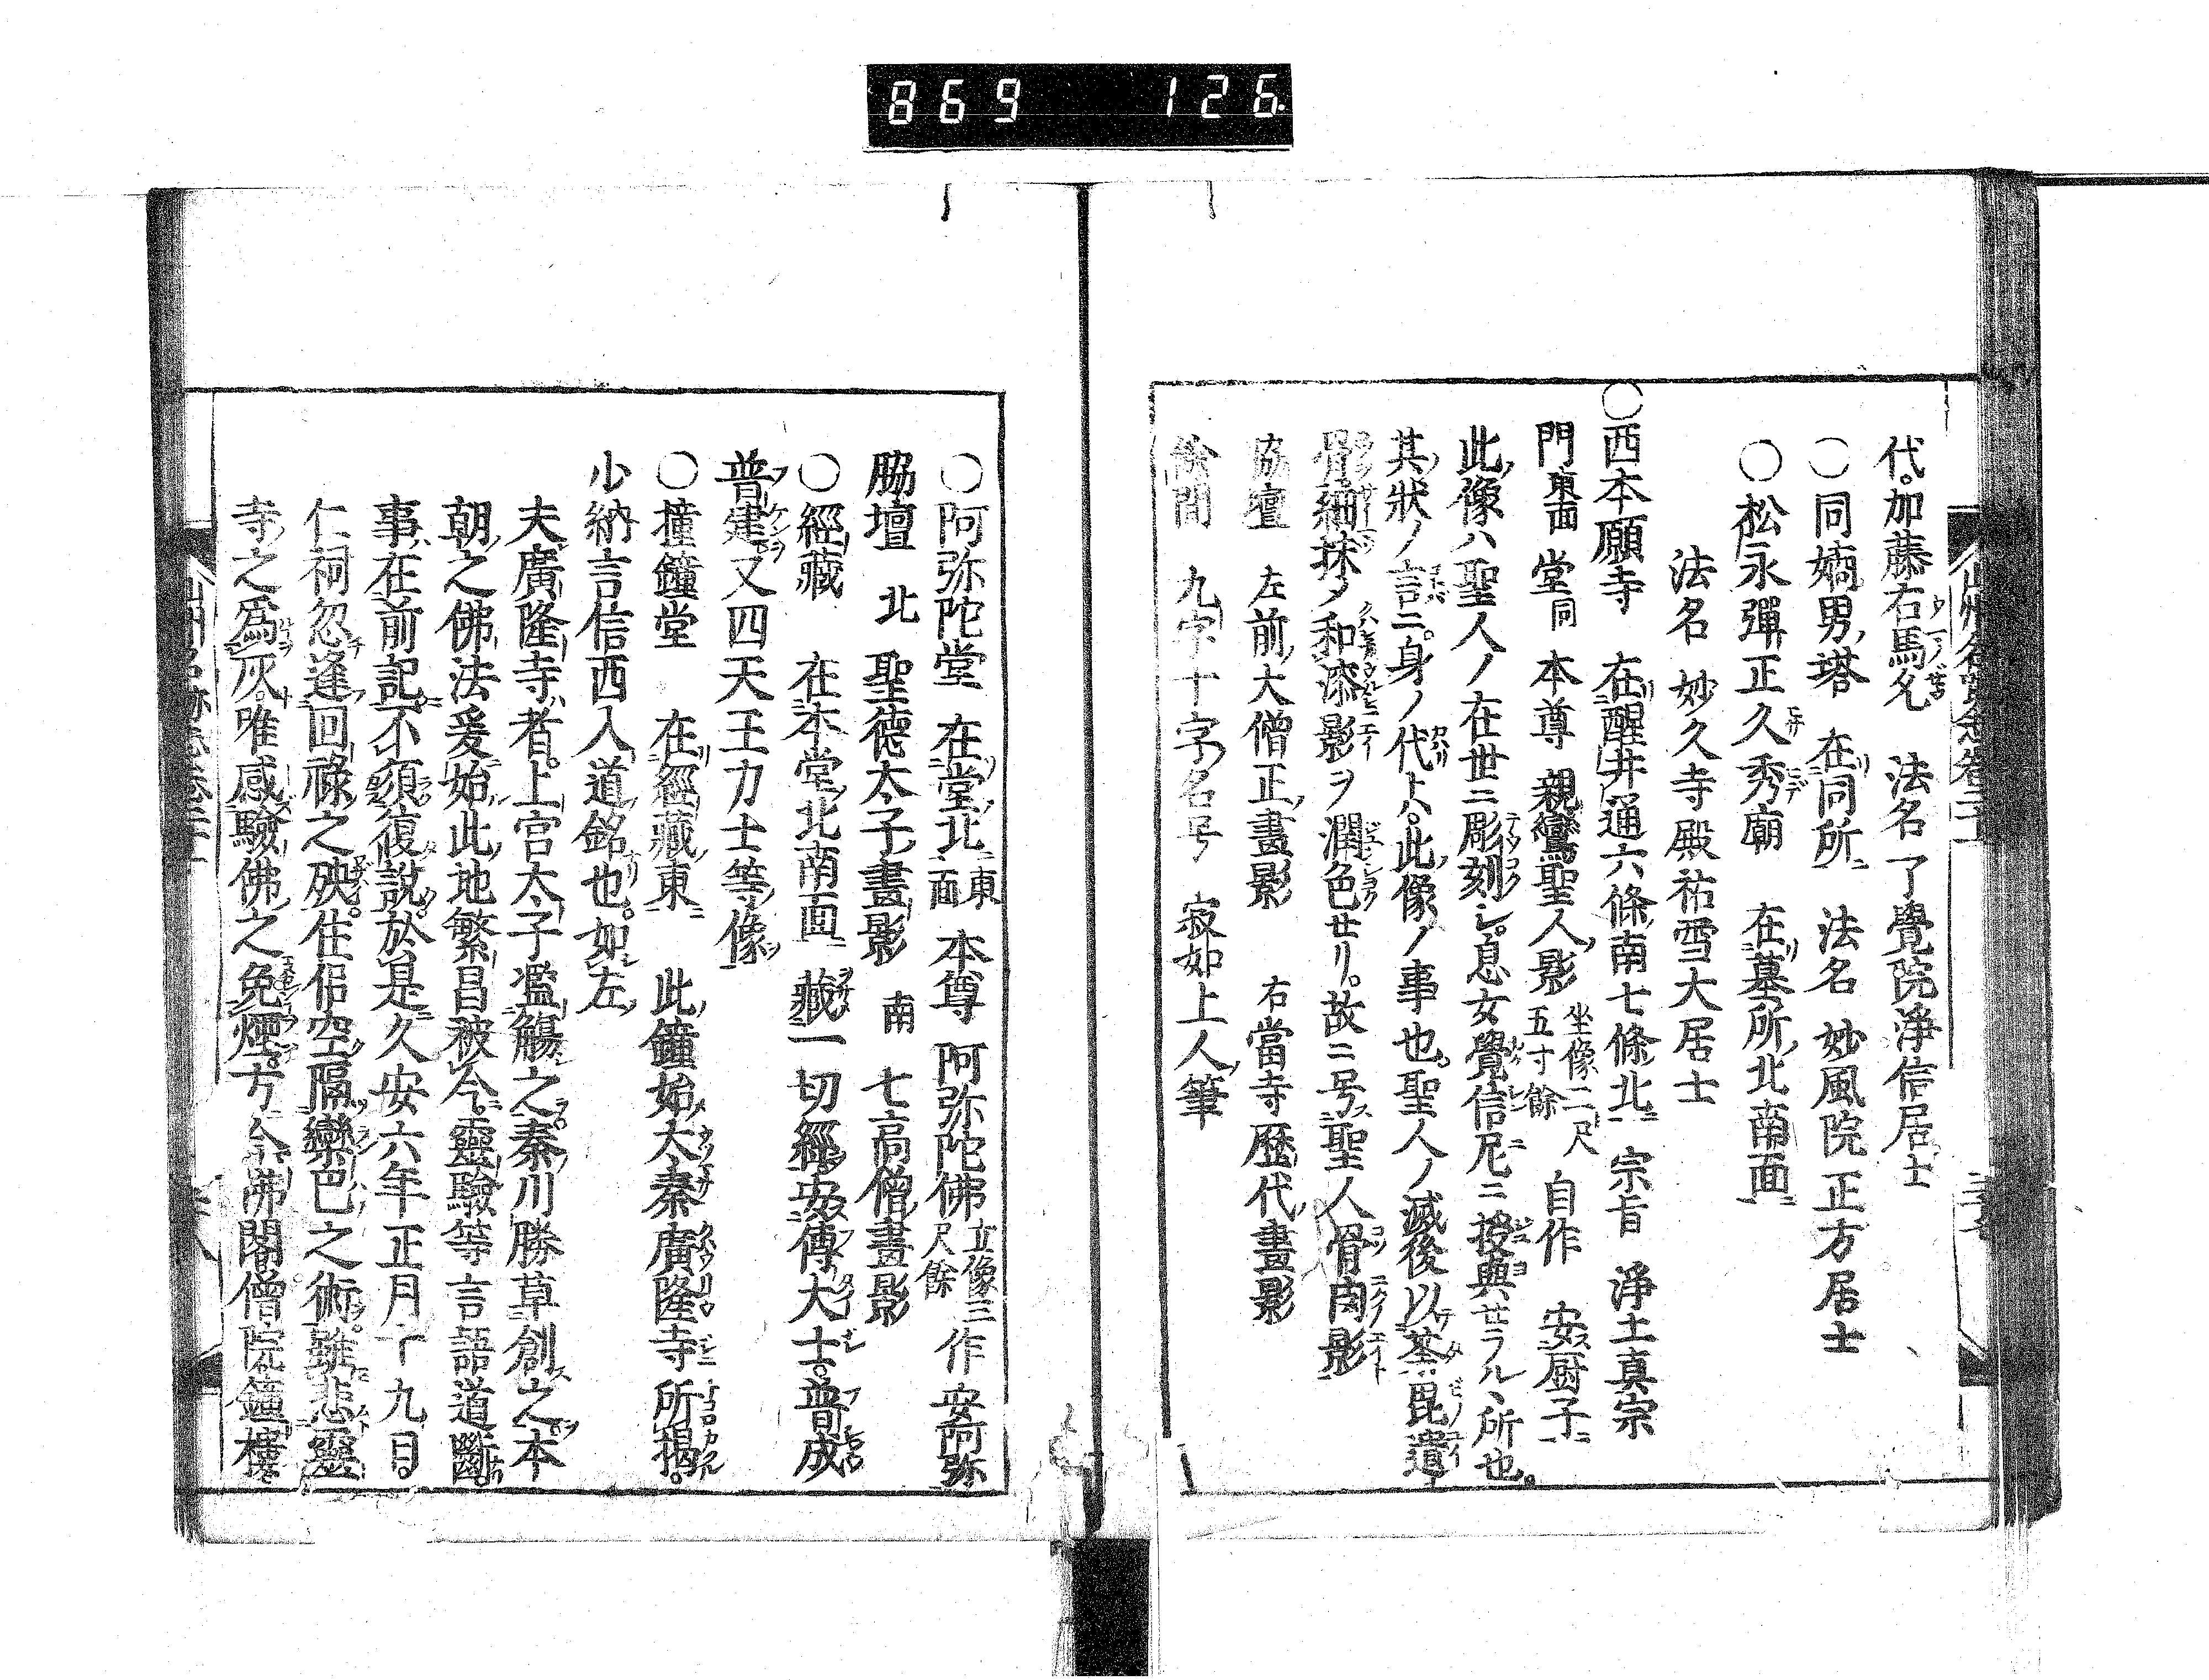 869 126
代。加藤右馬允 法名 了覺院淨信居士
○同嫡男塔 在同所 法名 妙風院正方居士
○松永彈正久秀廟 在墓所北南面
法名 妙久寺殿祐雪大居士
○西本願寺 在醒井通六條南七條北 宗旨 淨土真宗
門東面 堂同 本尊 親鸞聖人影 坐像二尺五寸餘 自作 安厨子
此像ハ聖人ノ在世ニ彫刻シ。息女覺信尼ニ授與セラルヽ所也。
其狀ノ言ニ。身ノ代トハ。此像ノ事也。聖人ノ滅後以荼毘遺
骨細抹タ和漆影ヲ潤色セリ。故ニ号聖人骨肉影
脇壇 左前大僧正畫影 右當寺歷代畫影
餘間 九字十字名号 寂如上人筆
○阿弥陀堂 在堂北東面 本尊 阿弥陀佛 立像三尺餘 作 安阿弥
脇壇 北 聖德太子畫影 南 七高僧畫影
○經藏 在本堂北南面 藏一切經安傳大士。普成
普建又四天王力士等像
○撞鐘堂 在經藏東 此鐘始太秦廣隆寺所揭。
少納言信西入道銘也。如左
夫廣隆寺者。上宮太子濫觴之。秦川勝草創之本
朝之佛法爰始此地繁昌被今。靈驗等言語道斷。
事在前記。不須復說。於是久安六年正月十九日。
仁祠忽逢回祿之殃。住侶空隔欒巴之術。雖悲靈
寺之爲灰。唯感驗佛之免煙。方今佛閣僧院鐘樓